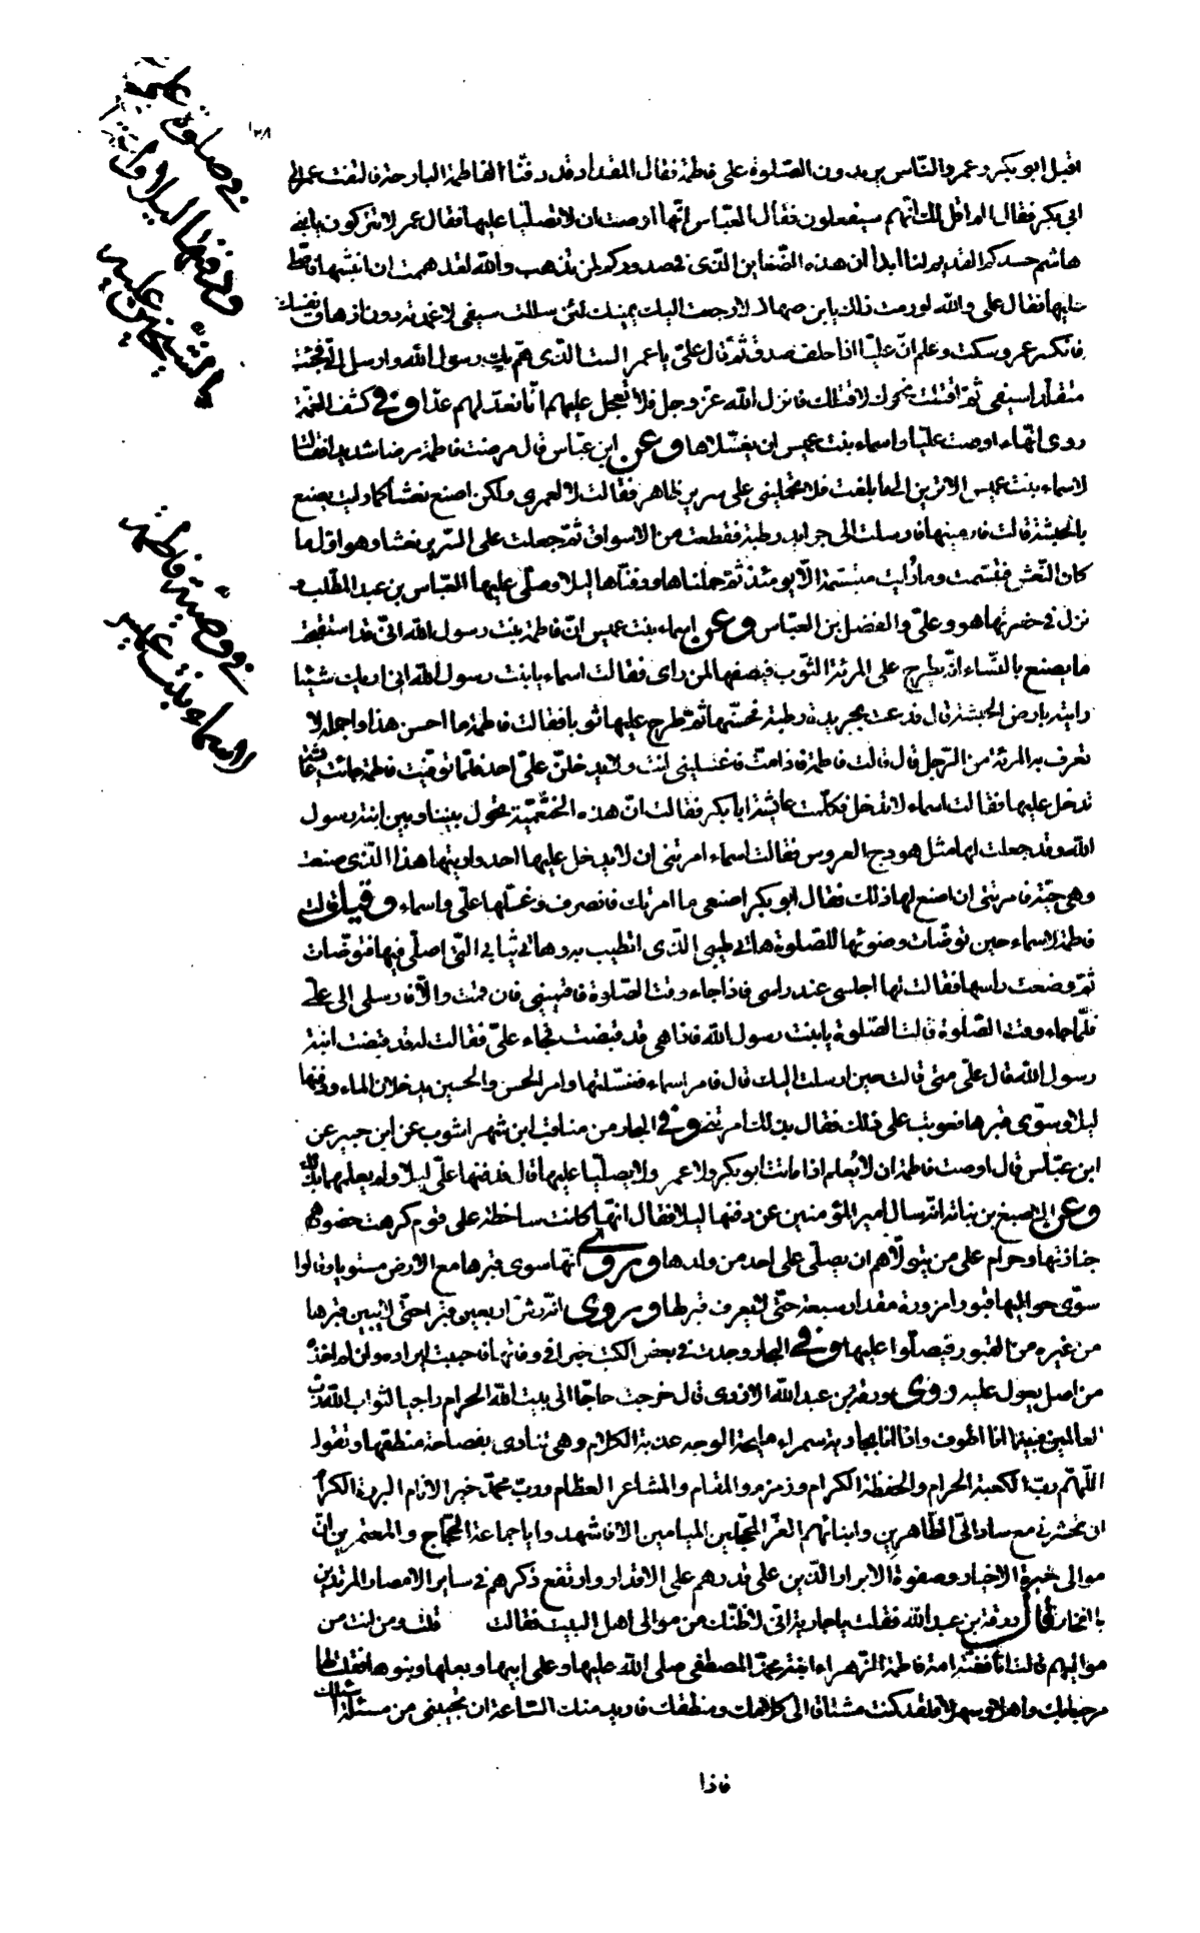 ١٣٨
في صلوة علي
ودفنها ليلا
في وصية فاطمة
لاسماء بنت عميس
اقبل ابو بكر وعمر والناس يريدون الصلوة على فاطمة فقال المقداد قد دفنا الفاطمة البارحة فالتفت عمر الى
ابي بكر فقال الم اقل لك انهم سيفعلون فقال العباس انها اوصت ان لا تصليا عليها فقال عمر لا تتركون يا بني
هاشم حسدكم القديم لنا ابدا ان هذه الضغاين التي في صدوركم لن تذهب والله لقد هممت ان انبشها فاصلي
عليها فقال علي والله لو رمت ذلك يابن صهاك لا رجعت اليك يمينك لئن سللت سيفي لا غمدته دون ازهاق نفسك
فانكسر عمر وسكت وعلم ان عليا اذا حلف صدق ثم قال علي يا عمر الست الذي هم بك رسول الله وارسل الي فجئت
متقلدا سيفي ثم اقبلت نحوك لاقتلك فانزل الله عز وجل فلا تعجل عليهم انما نعد لهم عدا وفي كشف الغمة
روي انها اوصت عليا واسماء بنت عميس ان يغسلاها وعن ابن عباس قال مرضت فاطمة مرضا شديدا فقالت
لاسماء بنت عميس الا ترين الى ما بلغت فلا تحمليني على سرير ظاهر فقالت لا لعمري ولكن اصنع نعشا كما رايت يصنع
بالحبشة قالت فارينيها فارسلت الى جرايد رطبة فقطعت من الاسواق ثم جعلت على السرير نعشا وهو اول ما
كان النعش فتبسمت وما رأيت متبسمة الا يومئذ ثم حملناها ودفناها ليلا وصلى عليها العباس بن عبد المطلب و
نزل في حفرتها هو وعلي والفضل بن العباس وعن اسماء بنت عميس ان فاطمة بنت رسول الله اني قد استقبحت
ما يصنع بالنساء انه يطرح على المرئة الثوب فيصفها لمن راى فقالت اسماء يا بنت رسول الله اني اريك شيئا
رايته بارض الحبشة قال فدعت بجريدة رطبة فحسنتها ثم طرح عليها ثوبا فقالت فاطمة ما احسن هذا واجمله لا
تعرف به المرئة من الرجل قال قالت فاطمة فاذا مت فاغسليني انت ولا يدخلن علي احد فلما توفيت فاطمة جائت عايشة
تدخل عليها فقالت اسماء لا تدخل فكلمت عايشة ابا بكر فقالت ان هذه الخثعمية تحول بيننا وبين ابنة رسول
الله وقد جعلت لها مثل هودج العروس فقالت اسماء امرتني ان لا يدخل عليها احد واريتها هذا الذي صنعت
وهي حية فامرتني ان اصنع لها ذلك فقال ابو بكر اصنعي ما امرتك فانصرف وغسلها علي واسماء وقيل قالت
فاطمة لاسماء حين توضات وضوئها للصلوة هاتي طيبي الذي اتطيب به وهاتي ثيابي التي اصلي فيها فتوضات
ثم وضعت راسها فقالت لها اجلسي عند راسي فاذا جاء وقت الصلوة فاقيميني فان قمت والا فارسلي الى علي
فلما جاء وقت الصلوة قالت الصلوة يا بنت رسول الله فاذا هي قد قبضت فجاء علي فقالت له قد قبضت ابنة
رسول الله قال علي متى قالت حين ارسلت اليك قال فامر اسماء فغسلتها وامر الحسن والحسين يدخلان الماء ودفنها
ليلا وسوى قبرها فعوتب على ذلك فقال بذلك امرتني وفي البحار من مناقب ابن شهر اشوب عن ابن جبير عن
ابن عباس قال اوصت فاطمة ان لا يعلم اذا ماتت ابو بكر ولا عمر ولا يصليا عليها قال فدفنها علي ليلا ولم يعلمهما بذلك
وعن الاصبغ بن نباته انه سال امير المؤمنين عن دفنها ليلا فقال انها كانت ساخطة على قوم كرهت حضورهم
جنازتها وحرام على من يتولاهم ان يصلي على احد من ولدها وروي انها سوى قبرها مع الارض مستويا وقالوا
سوى حواليها قبورا مزورة مقدار سبعة حتى لا يعرف قبرها وروي انه رش اربعين قبرا حتى لا يبين قبرها
من غيره من القبور فيصلوا عليها وفي البحار وجدت في بعض الكتب خبرا في وفاتها فاحببت ايراده وان لم اخذه
من اصل يعول عليه روى ورقة بن عبد الله الازدي قال خرجت حاجا الى بيت الله الحرام راجيا لثواب الله رب
العالمين فبينما انا اطوف واذا انا بجارية سمراء مليحة الوجه عذبة الكلام وهي تنادي بفصاحة منطقها وتقول
اللهم رب الكعبة الحرام والحفظة الكرام وزمزم والمقام والمشاعر العظام ورب محمد خير الانام البررة الكرام
ان تحشرني مع ساداتي الطاهرين وابنائهم الغر المحجلين الميامين الا فاشهدوا يا جماعة الحجاج والمعتمرين ان
موالي خيرة الاخيار وصفوة الابرار الذين علي قدرهم على الاقدار وارتفع ذكرهم في ساير الامصار المرتدين
بالفخار قال ورقة بن عبد الله فقلت يا جارية اني لاظنك من موالي اهل البيت فقالت قلت ومن انت من
مواليهم قالت انا فضة امة فاطمة الزهراء ابنة محمد المصطفى صلى الله عليها وعلى ابيها وبعلها وبنوها فقلت لها
مرحبا بك واهلا وسهلا فلقد كنت مشتاقا الى كلامك ومنطقك فاريد منك الساعة ان تجيبيني من مسئلة اسئلك
فاذا